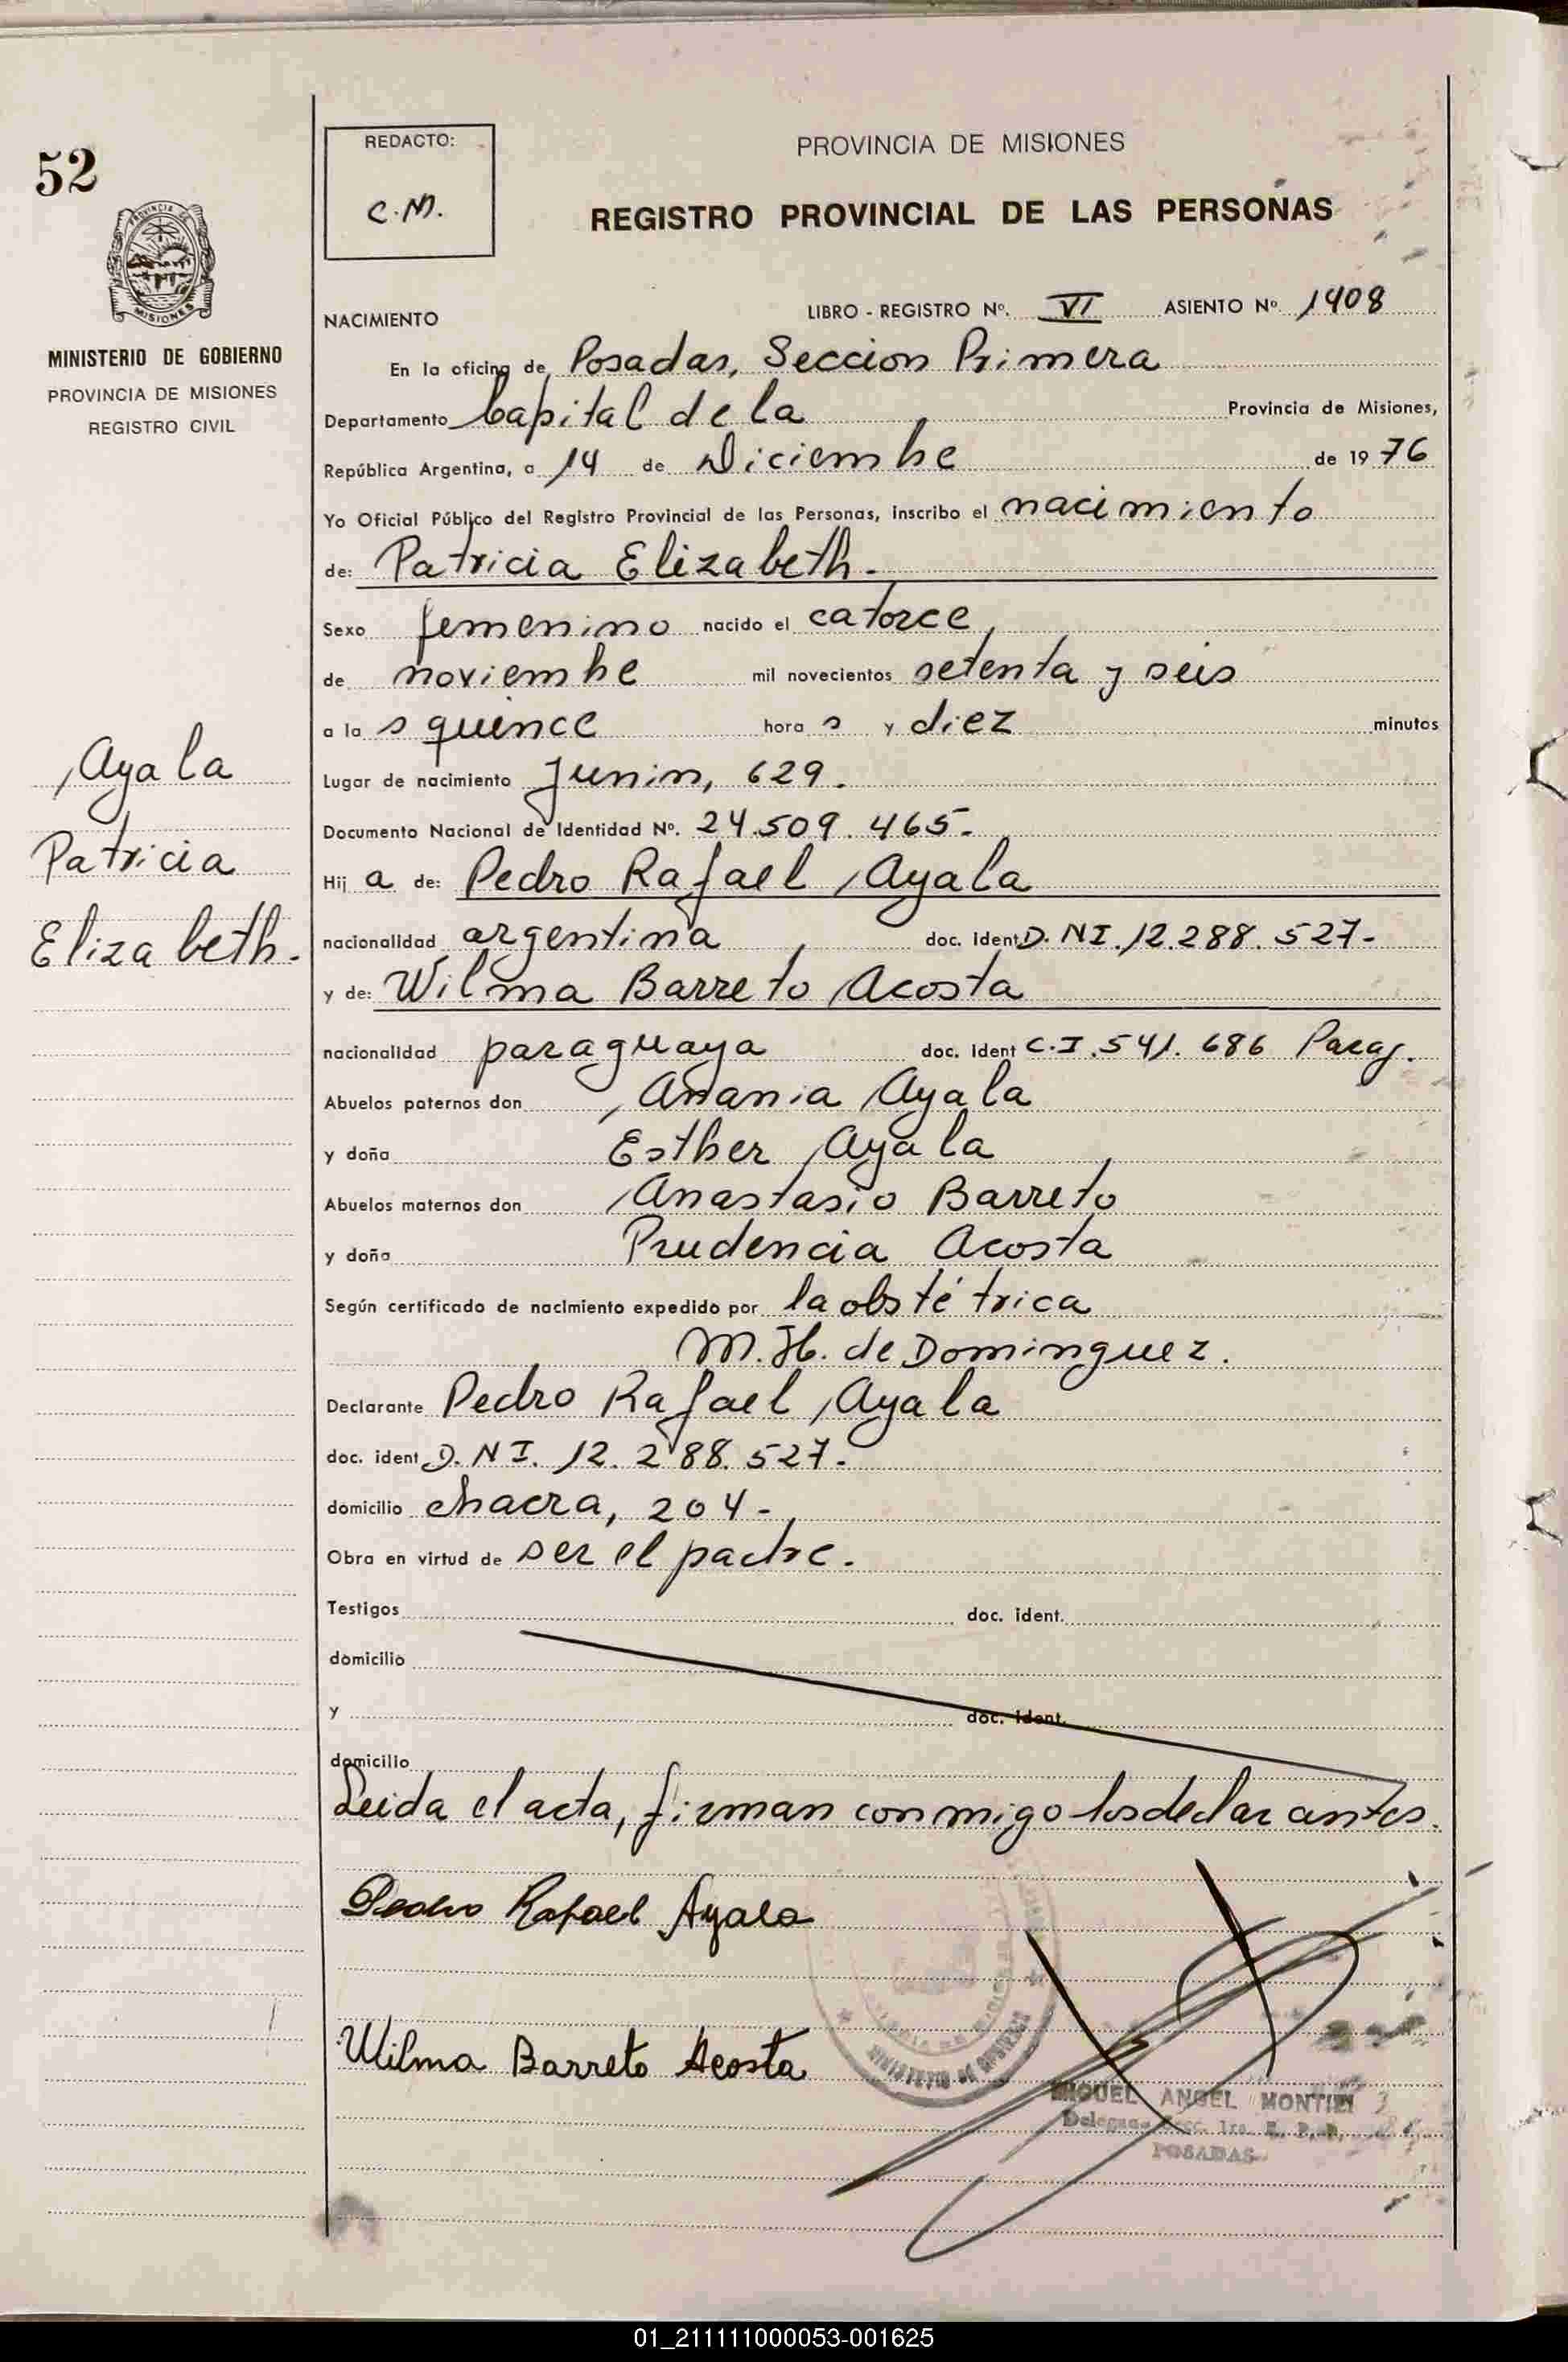 52
REDACTO:
C.M.
PROVINCIA DE MISIONES
REGISTRO PROVINCIAL DE LAS PERSONAS
PROVINCIA DE
MISIONES
MINISTERIO DE GOBIERNO
PROVINCIA DE MISIONES
REGISTRO CIVIL
NACIMIENTO
LIBRO - REGISTRO Nº. VI ASIENTO Nº 1408
En la oficina de Posadas, Seccion Primera
Departamento Capital de la Provincia de Misiones,
República Argentina, a 14 de Diciembre de 19 76
Yo Oficial Público del Registro Provincial de las Personas, inscribo el nacimiento
de: Patricia Elizabeth.
Sexo femenino nacido el catorce
de noviembre mil novecientos setenta y seis
a la s quince hora s y diez minutos
Lugar de nacimiento Junin, 629.
Documento Nacional de Identidad Nº. 24.509.465-
Hij a de: Pedro Rafael Ayala
nacionalidad argentina doc. Ident D.NI.12.288.527-
y de: Wilma Barreto Acosta
nacionalidad paraguaya doc. Ident C.I.541.686 Parag.
Abuelos paternos don Anania Ayala
y doña Esther Ayala
Abuelos maternos don Anastasio Barreto
y doña Prudencia Acosta
Según certificado de nacimiento expedido por la obstétrica
M.H. de Dominguez.
Declarante Pedro Rafael Ayala
doc. ident D.NI. 12.288.527-
domicilio chacra, 204-
Obra en virtud de ser el padre.
Testigos doc. ident.
domicilio
y doc. ident.
domicilio
Leida el acta, firman conmigo los declarantes.
Pedro Rafael Ayala
Wilma Barreto Acosta
MINISTERIO DE GOBIERNO
MIGUEL ANGEL MONTIEL
POSADAS
Ayala
Patricia
Elizabeth.
01_211111000053-001625